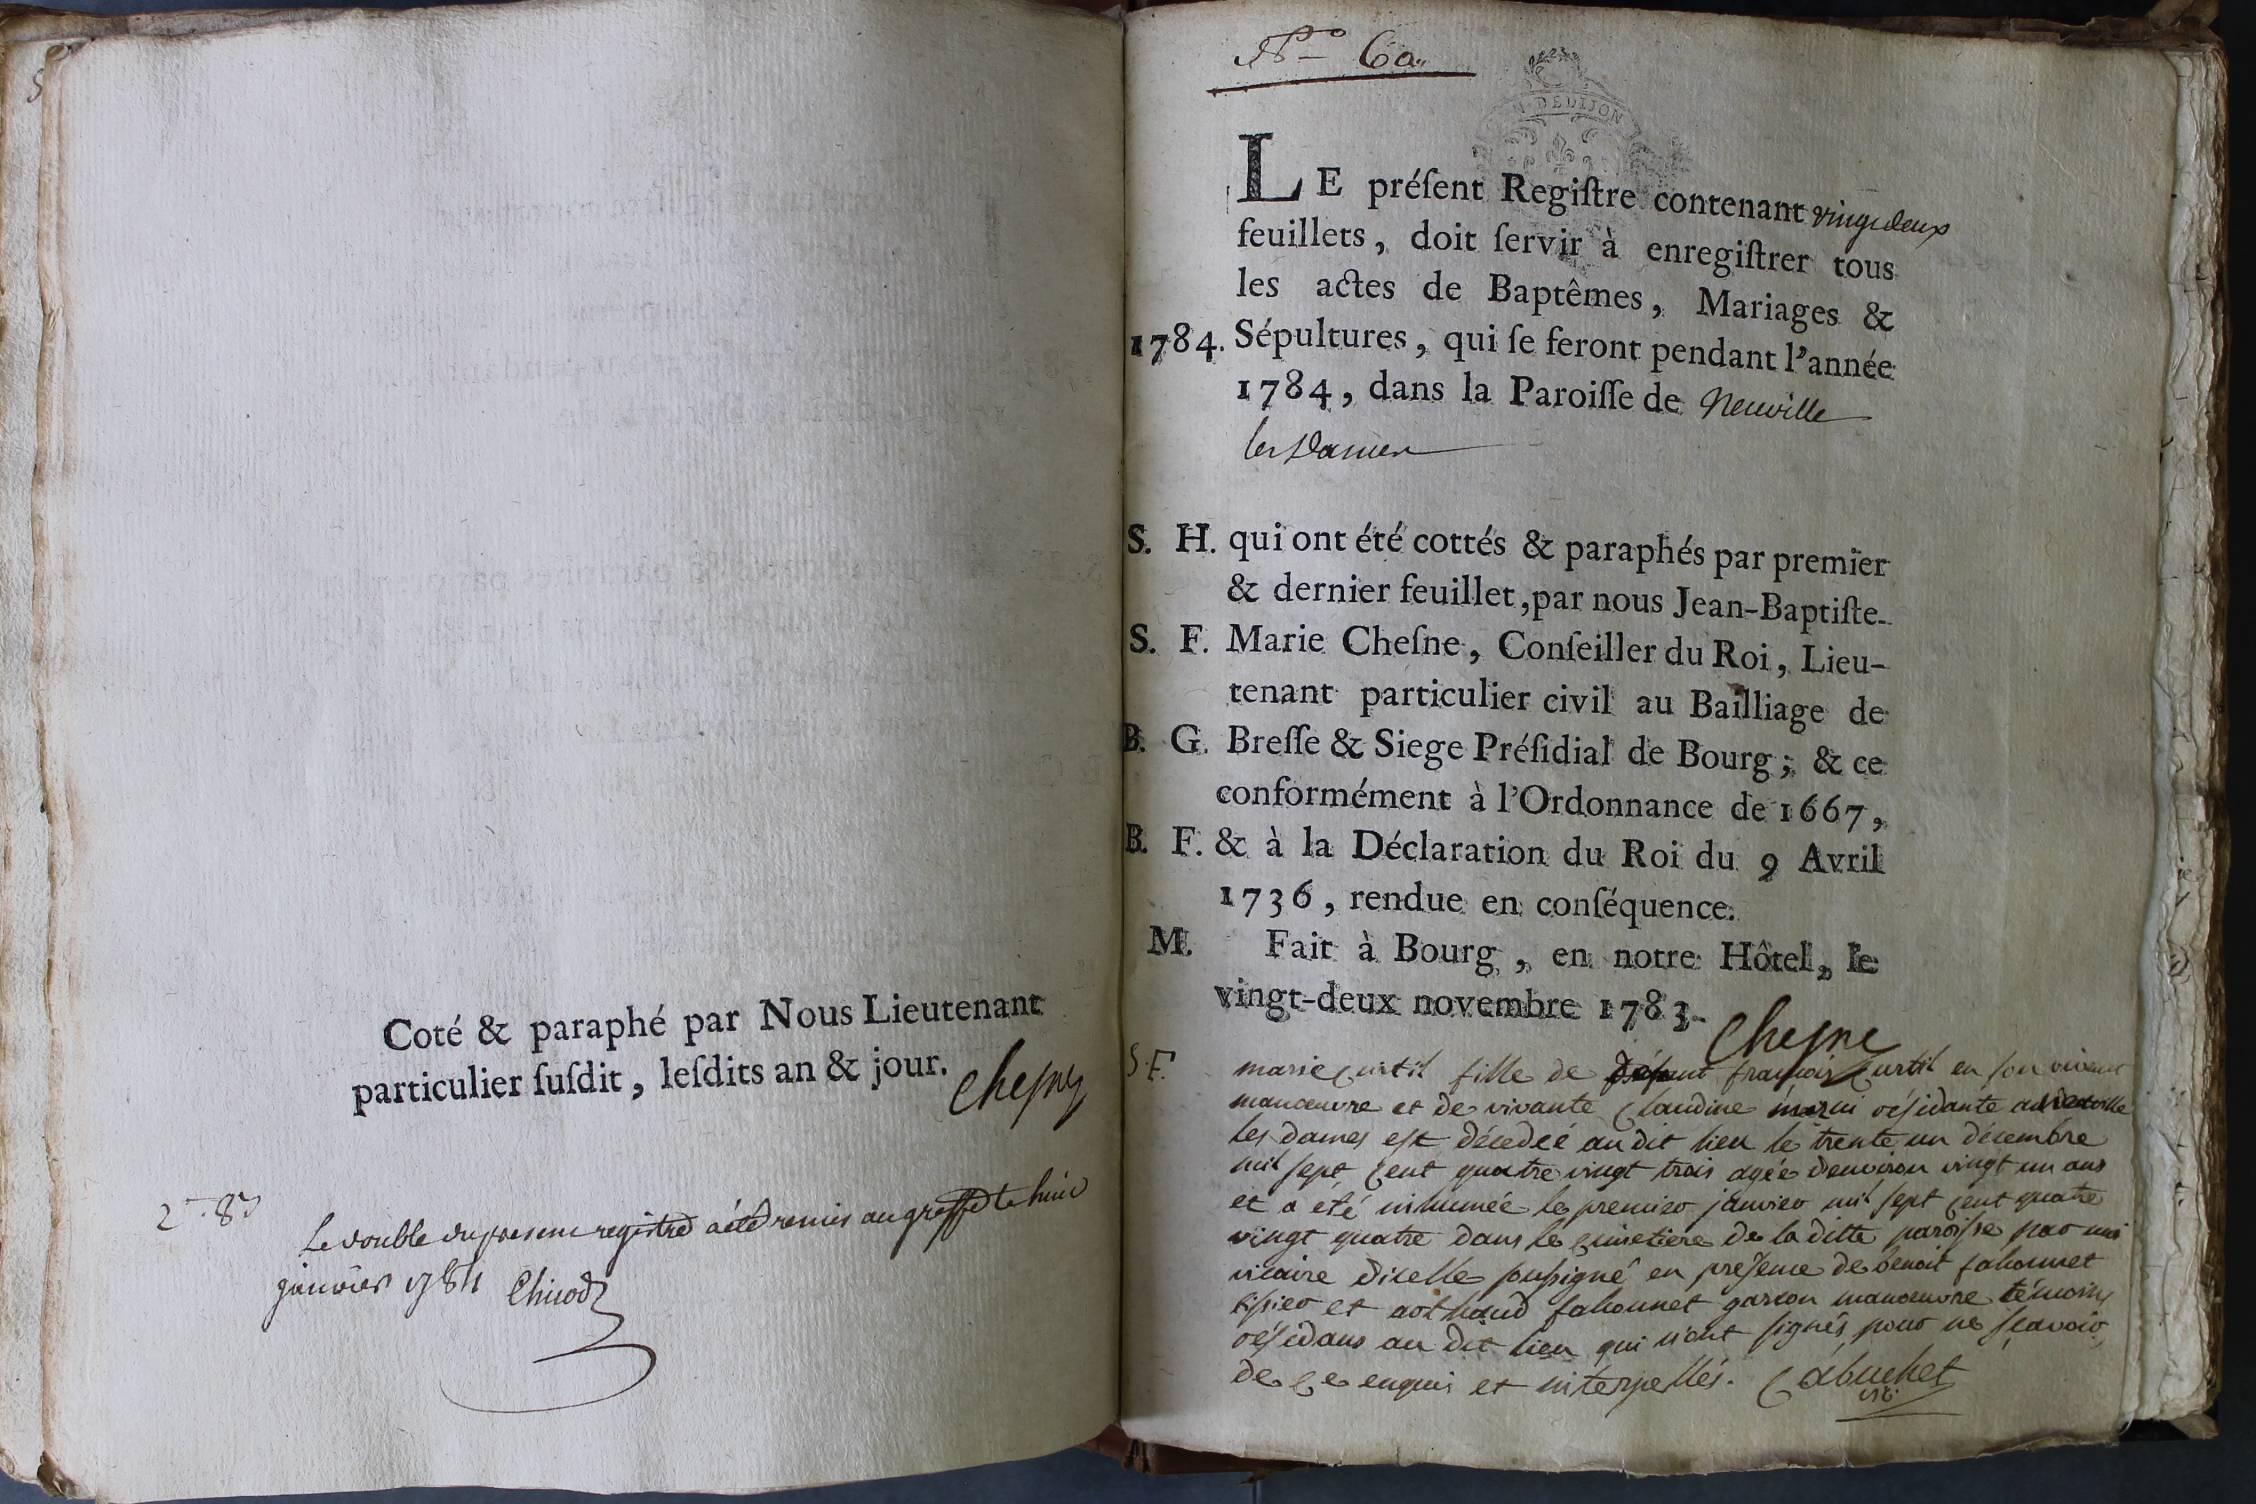 Coté & paraphé par Nous Lieutenant
particulier ſuſdit, leſdits an & jour.
Chesne
Le double du present registre a été remis au greffe le huit
janvier 1784
Nº 60.
N DE DIJON
LE préſent Regiſtre contenant vingt deux
feuillets, doit ſervir à enregiſtrer tous
les actes de Baptêmes, Mariages &
1784. Sépultures, qui ſe feront pendant l'année
1784, dans la Paroiſſe de Neuville
les Dames
S. H. qui ont été cottés & paraphés par premier
& dernier feuillet, par nous Jean-Baptiſte-
S. F. Marie Cheſne, Conſeiller du Roi, Lieu-
tenant particulier civil au Bailliage de
B. G. Breſſe & Siege Préſidial de Bourg; & ce
conformément à l'Ordonnance de 1667,
B. F. & à la Déclaration du Roi du 9 Avril
1736, rendue en conſéquence.
M. Fait à Bourg, en notre Hôtel, le
vingt-deux novembre 1783.
Chesne
S. F. marie Curtil fille de défunt françois Curtil en son vivant
manœuvre et de vivante Claudine résidante a Neuville
les dames est décedée au dit lieu le trente un décembre
mil sept cent quatre vingt trois agée d'environ vingt un ans
et a été inhumée le premier janvier mil sept cent quatre
vingt quatre dans le cimetiere de la ditte paroisse par moi
vicaire d'icelle soussigné en présence de benoit fahonnet
et fahonnet garcon manœuvre témoins
résidans au dit lieu qui n'ont signés pour ne sçavoir
de ce enquis et interpellés. Cabuchet
vic.